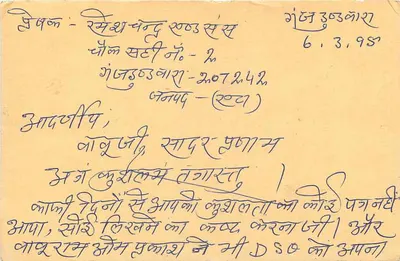 प्रेषक - रमेश चन्द्र एण्ड संस गंजडुण्डवारा
चौक सब्जी नं॰ - 2 6.3.95
गंजडुण्डवारा - 207242
जनपद - (एटा)
आदरणीय,
बाबूजी, सादर प्रणाम
अत्रं कुशलम तत्रास्तु ।
काफी दिनों से आपकी कुशलता का कोई पत्र नहीं
आया, सोई लिखने का कष्ट करना जी। और
बाबूराम ओम प्रकाश ने भी DSO को अपना